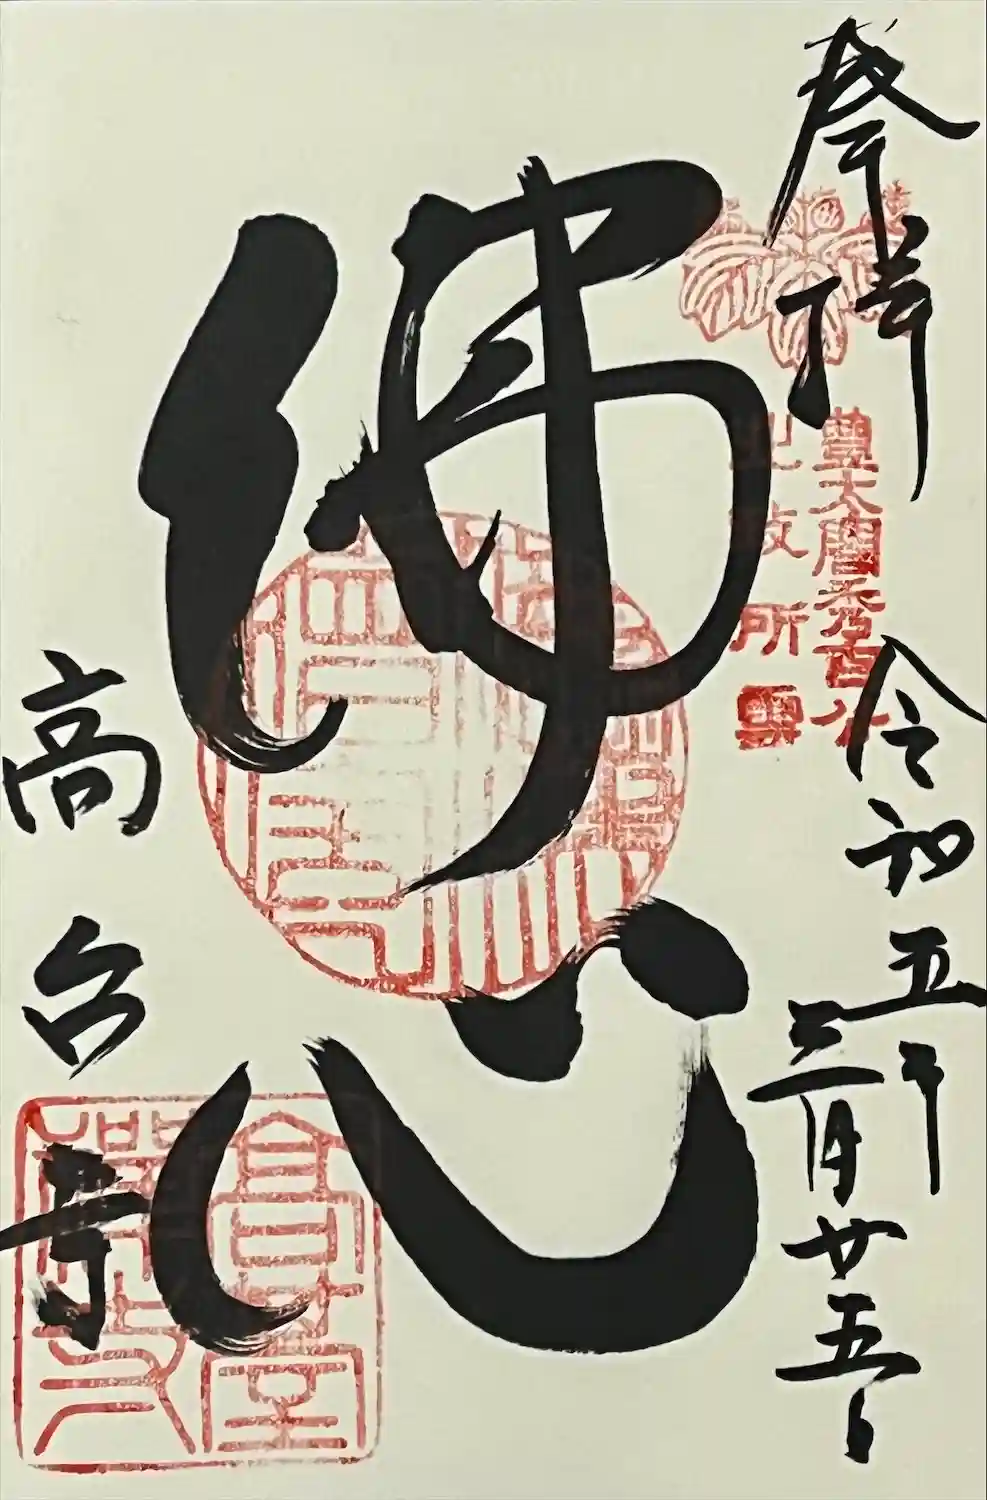 奉拝
令和五年
三月廿五日
豊太閤秀吉公
北政所霊
佛心
高台寺